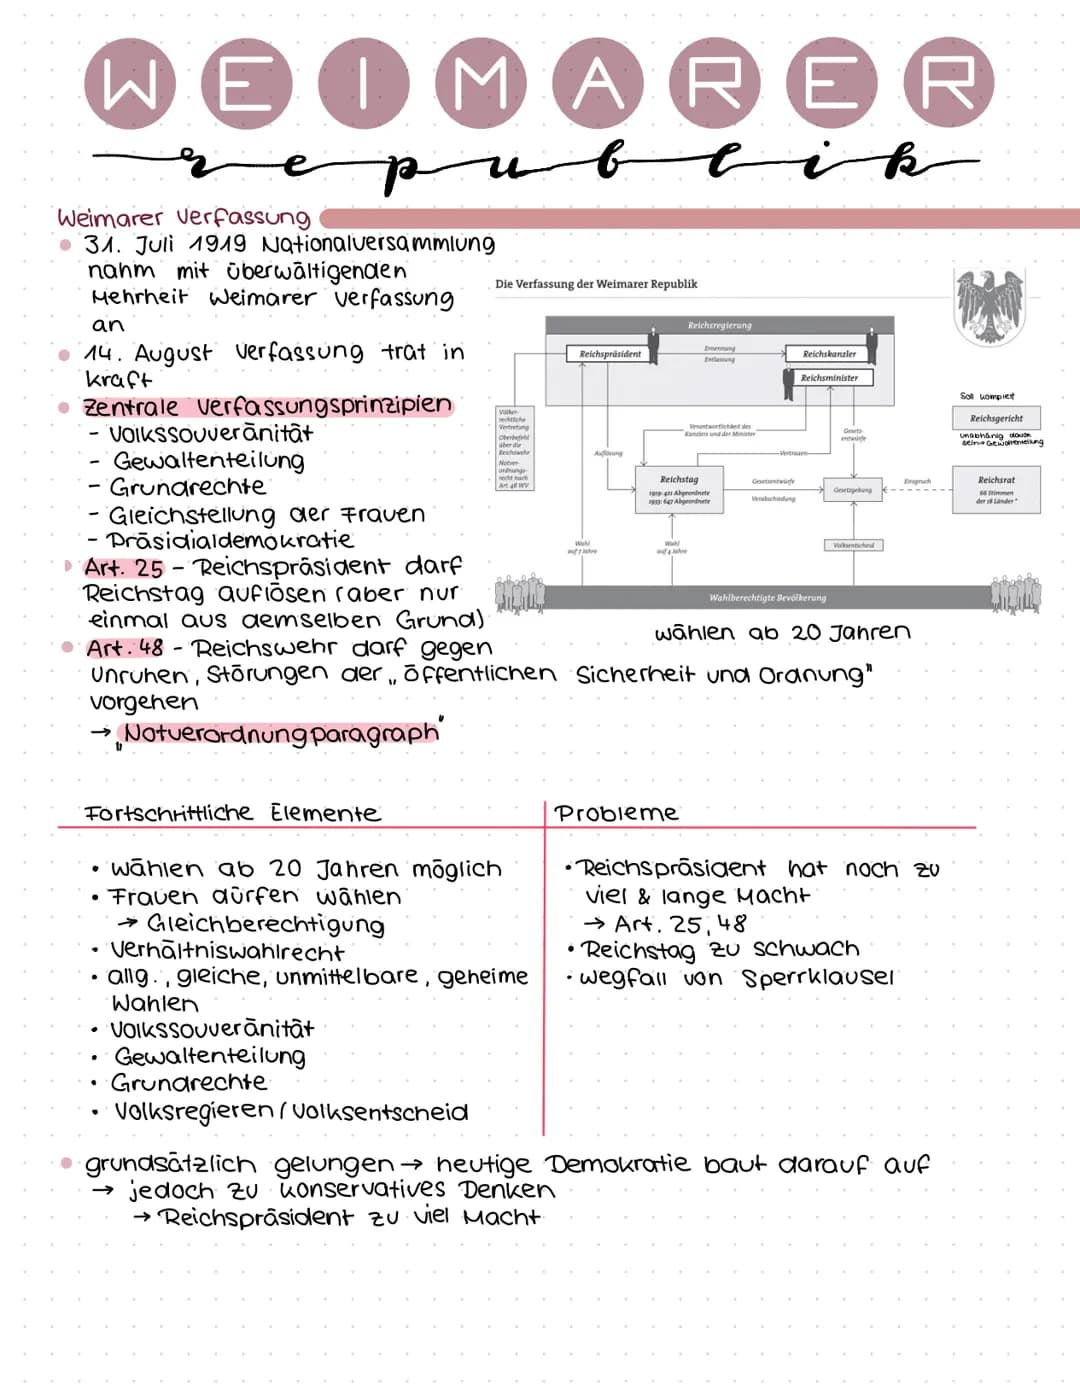 WEIMARER
republik
Weimarer Verfassung
31. Juli 1919 Nationalversammlung
nahm mit überwältigenden
Mehrheit Weimarer Verfassung
an
14. August Verfassung trat in
kraft
Zentrale Verfassungsprinzipien
- Volkssouveränität
- Gewaltenteilung
- Grundrechte
- Gleichstellung der Frauen
- Präsidialdemokratie
Art. 25 - Reichspräsident darf
Reichstag auflösen (aber nur
einmal aus demselben Grund)
Art. 48 - Reichswehr darf gegen
Unruhen, Störungen der „öffentlichen Sicherheit und Ordnung"
vorgehen
→ „Notverordnungparagraph"
Die Verfassung der Weimarer Republik
Reichsregierung
Reichspräsident
Ernennung
Entlassung
Reichskanzler
Reichsminister
Völker-
rechtliche
Vertretung
Oberbefehl
über die
Reichswehr
Notver-
ordnungs-
recht nach
Art. 48 WV
Auflösung
Verantwortlichkeit des
Kanzlers und der Minister
Vertrauen
Gesetz-
entwürfe
Soll komplett
Reichsgericht
unabhänig davon
sein → Gewaltenteilung
Reichstag
1919: 421 Abgeordnete
1933: 647 Abgeordnete
Gesetzentwürfe
Verabschiedung
Gesetzgebung
Einspruch
Reichsrat
66 Stimmen
der 18 Länder *
Wahl
auf 7 Jahre
Wahl
auf 4 Jahre
Volksentscheid
Wahlberechtigte Bevölkerung
wählen ab 20 Jahren
Fortschrittliche Elemente
• wählen ab 20 Jahren möglich
• Frauen dürfen wählen
→ Gleichberechtigung
• Verhältniswahlrecht
• allg., gleiche, unmittelbare, geheime
Wahlen
• Volkssouveränität
• Gewaltenteilung
• Grundrechte
• Volksregieren / Volksentscheid
Probleme
• Reichspräsident hat noch zu
viel & lange Macht
→ Art. 25, 48
• Reichstag zu schwach
• wegfall von Sperrklausel
grundsätzlich gelungen → heutige Demokratie baut darauf auf
→ jedoch zu konservatives Denken
→ Reichspräsident zu viel Macht